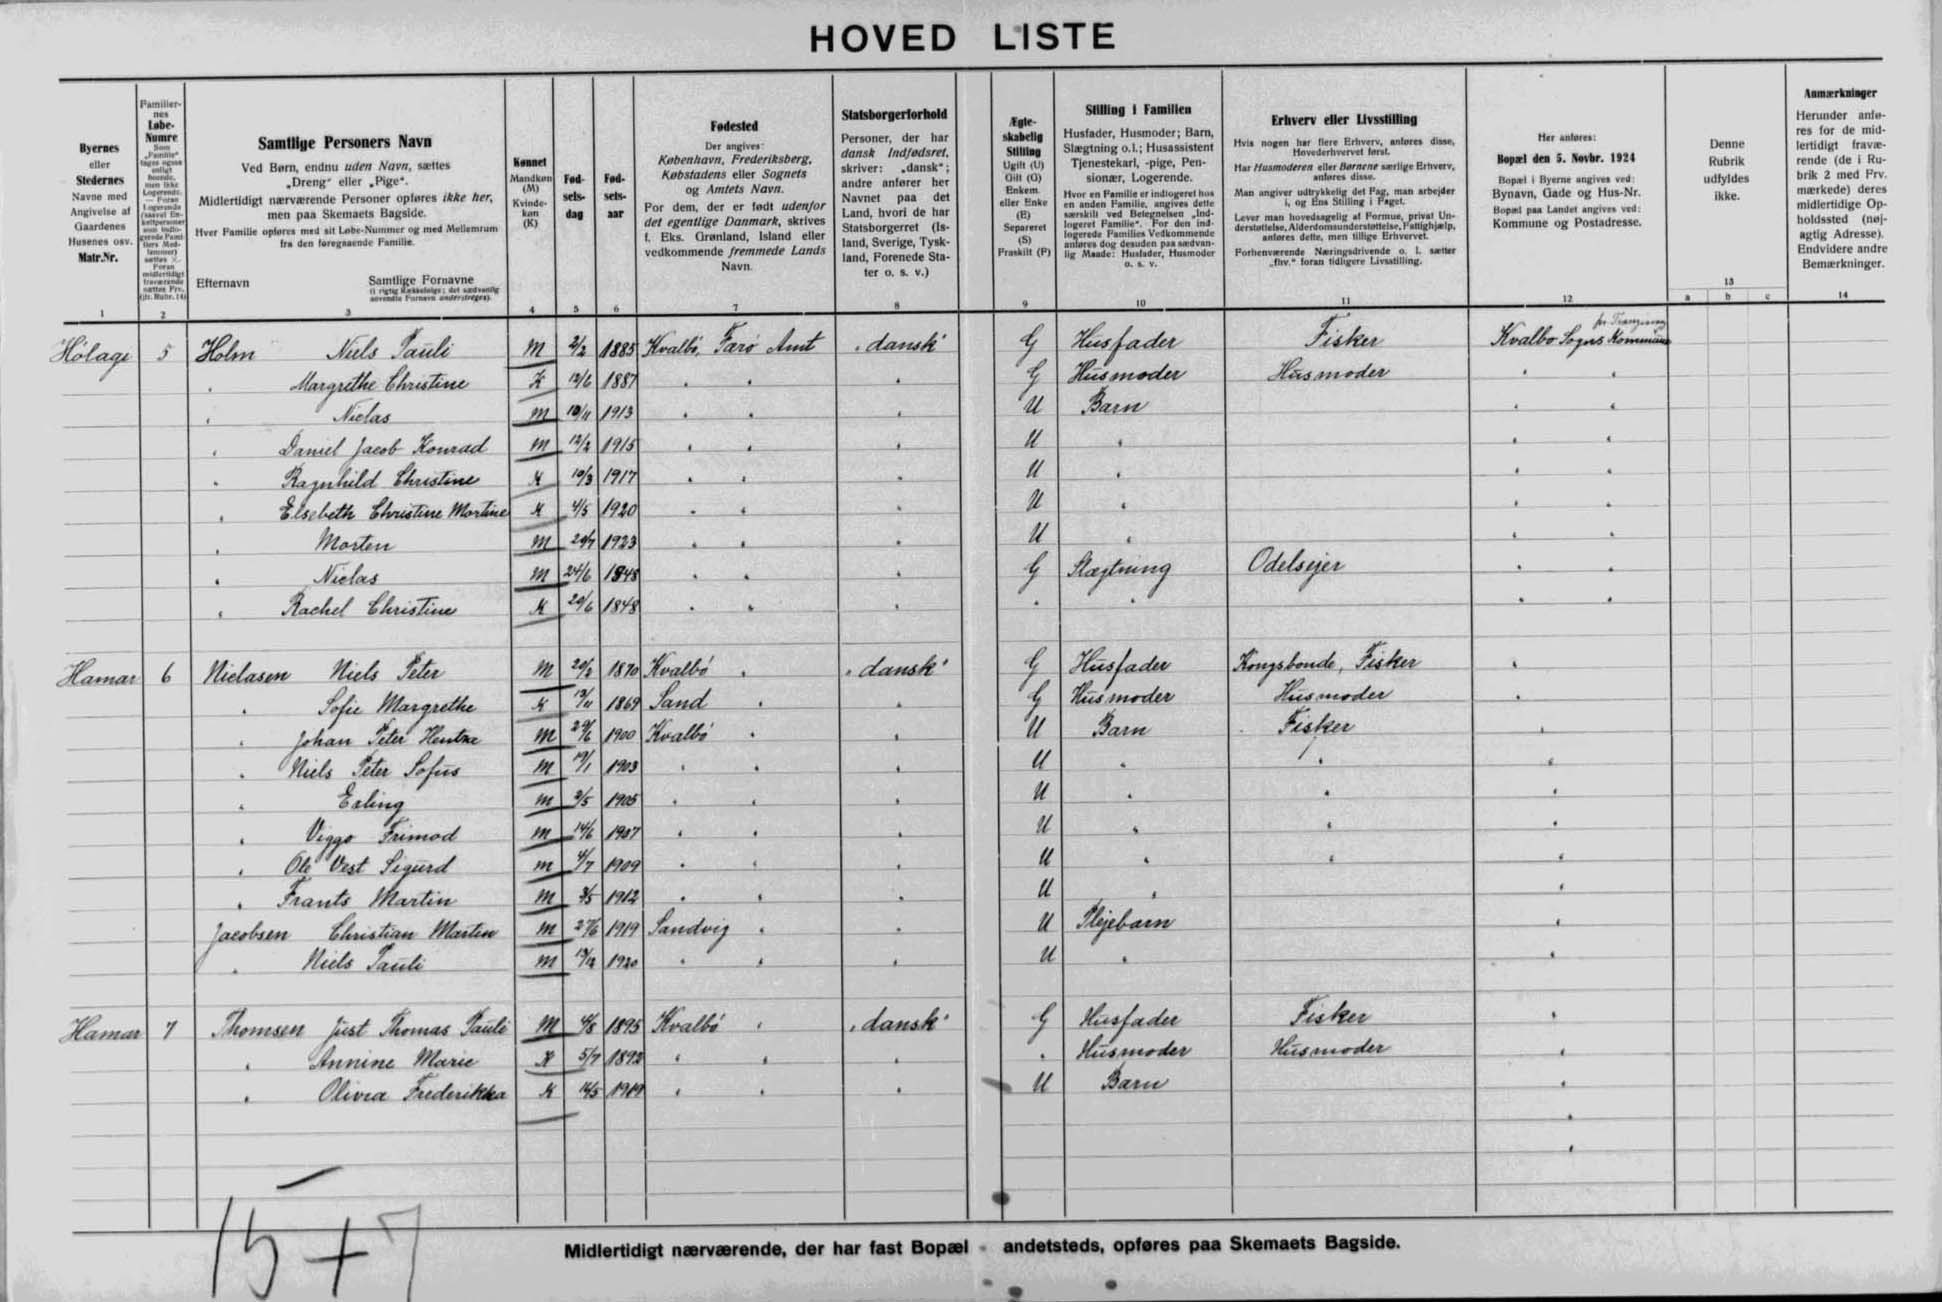 HOVED LISTE
Byernes
eller
Stedernes
Navne med
Angivelse af
Gaardenes
Husenes osv.
Matr.Nr.
1
Familier-
nes
Løbe-
Numre
Som
„Familie“
tages ogsaa
enligt
boende,
men ikke
Logerende.
— Foran
Logerende
sættes
Foran
midlertidigt
fraværende
sættes Frv.
(jfr. Rubr. 14)
2
Samtlige Personers Navn
Ved Børn, endnu uden Navn, sættes
„Dreng“ eller „Pige“.
Midlertidigt nærværende Personer opføres ikke her,
men paa Skemaets Bagside.
Hver Familie opføres med sit Løbe-Nummer og med Mellemrum
fra den foregaaende Familie.
Efternavn
Samtlige Fornavne
(i rigtig Rækkefølge; det sædvanlig
anvendte Fornavn understreges).
3
Kønnet
Mandkøn
(M)
Kvinde-
køn
(K)
4
Fød-
sels-
dag
5
Fød-
sels-
aar
6
Fødested
Der angives:
København, Frederiksberg,
Købstadens eller Sognets
og Amtets Navn.
For dem, der er født udenfor
det egentlige Danmark, skrives
f. Eks. Grønland, Island eller
vedkommende fremmede Lands
Navn.
7
Statsborgerforhold
Personer, der har
dansk Indfødsret,
skriver: „dansk“;
andre anfører her
Navnet paa det
Land, hvori de har
Statsborgerret (Is-
land, Sverige, Tysk-
land, Forenede Sta-
ter o. s. v.)
8
Ægte-
skabelig
Stilling
Ugift (U)
Gift (G)
Enkem.
eller Enke
(E)
Separeret
(S)
Fraskilt (F)
9
Stilling i Familien
Husfader, Husmoder; Barn,
Slægtning o.l.; Husassistent
Tjenestekarl, -pige, Pen-
sionær, Logerende.
Hvor en Familie er indlogeret hos
en anden Familie, angives dette
særskilt ved Betegnelsen „Ind-
logeret Familie“. For den ind-
logerede Families Vedkommende
anføres dog desuden paa sædvan-
lig Maade: Husfader, Husmoder
o. s. v.
10
Erhverv eller Livsstilling
Hvis nogen har flere Erhverv, anføres disse,
Hovederhvervet først.
Har Husmoderen eller Børnene særlige Erhverv,
anføres disse.
Man angiver udtrykkelig det Fag, man arbejder
i, og Ens Stilling i Faget.
Lever man hovedsagelig af Formue, privat Un-
derstøttelse, Alderdomsunderstøttelse, Fattighjælp,
anføres dette, men tillige Erhvervet.
Forhenværende Næringsdrivende o. l. sætter
„fhv.“ foran tidligere Livsstilling.
11
Her anføres:
Bopæl den 5. Novbr. 1924
Bopæl i Byerne angives ved:
Bynavn, Gade og Hus-Nr.
Bopæl paa Landet angives ved:
Kommune og Postadresse.
12
Denne
Rubrik
udfyldes
ikke.
13
a b c
Anmærkninger
Herunder anfø-
res for de mid-
lertidigt fravæ-
rende (de i Ru-
brik 2 med Frv.
mærkede) deres
midlertidige Op-
holdssted (nøj-
agtig Adresse).
Endvidere andre
Bemærkninger.
14
Hólage 5 Holm Niels Pauli M 2/2 1885 Kvalbö, Færø Amt „dansk“ G Husfader Fisker Kvalbø Sogns Kommune
" Margrethe Christine K 12/6 1887 " " " G Husmoder Husmoder " "
" Niclas M 10/11 1913 " " " U Barn " "
" Daniel Jacob Konrad M 12/2 1915 " " " U " " "
" Ragnhild Christine K 10/3 1917 " " " U " " "
" Elsebeth Christine Mortine K 4/5 1920 " " " U " " "
" Morten M 29/7 1923 " " " U " " "
" Niclas M 24/6 1848 " " " G Slægtning Odelsejer " "
" Rachel Christine K 29/6 1848 " " " " " " "
Hamar 6 Niclasen Niels Peter M 20/2 1870 Kvalbö " „dansk“ G Husfader Kongsbonde, Fisker "
" Sofie Margrethe K 13/11 1869 Sand " " G Husmoder Husmoder "
" Johan Peter Hentze M 29/6 1900 Kvalbö " " U Barn Fisker "
" Niels Peter Sofus M 19/1 1903 " " " U " " "
" Erling M 3/5 1905 " " " U " " "
" Viggo Frimod M 14/6 1907 " " " U " " "
" Ole Vest Sigurd M 4/7 1909 " " " U " " "
" Frants Martin M 3/5 1912 " " " U " "
Jacobsen Christian Martin M 27/6 1919 Sandvig " " U Plejebarn "
" Niels Pauli M 13/12 1920 " " " U " "
Hamar 7 Thomsen Just Thomas Pauli M 4/8 1895 Kvalbö " „dansk“ G Husfader Fisker "
" Annine Marie K 5/7 1892 " " " " Husmoder Husmoder "
" Olivia Frederikka K 14/5 1919 " " " U Barn "
"
"
15 + 7
Midlertidigt nærværende, der har fast Bopæl andetsteds, opføres paa Skemaets Bagside.